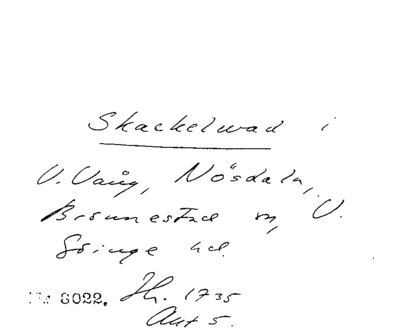 Skackelwad i
V. Vång, Nösdala,
Brönnestad m, V.
Göinge hd.
No 8022. Jh. 1735
Ant 5.